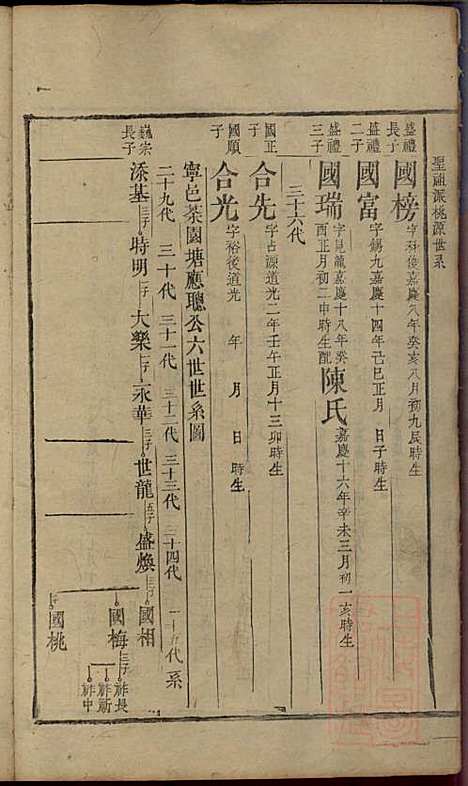 聖祖派桃源世系
盛禮長子 國榜 字 嘉慶八年癸亥八月初九辰時生
盛禮二子 國富 字錫九嘉慶十四年己巳正月 日子時生
盛禮三子 國瑞 字見龍嘉慶十八年癸酉正月初二申時生配陳氏嘉慶十六年辛未三月初一亥時生
三十六代
國正子 合先 字占源道光二年壬午正月十三卯時生
國順子 合光 字裕後道光 年 月 日 時生
寧邑茶園塘應聰公六世世系圖
二十九代 三十代 三十一代 三十二代 三十三代 三十四代 三十五代 系
巍宗長子 添基 三子 時明 二子 大樂 二子 永華 三子 世龍 五子 盛煥 三子 國相
國梅 三子 祚長
祚新
祚中
國桃